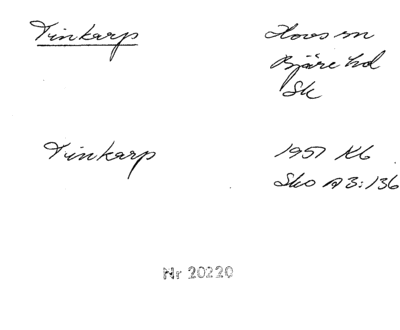 Tinkarp
Hovs sn
Bjäre hd
Sk
Tinkarp
1957 Kb
Sko A3:136
Nr 20220